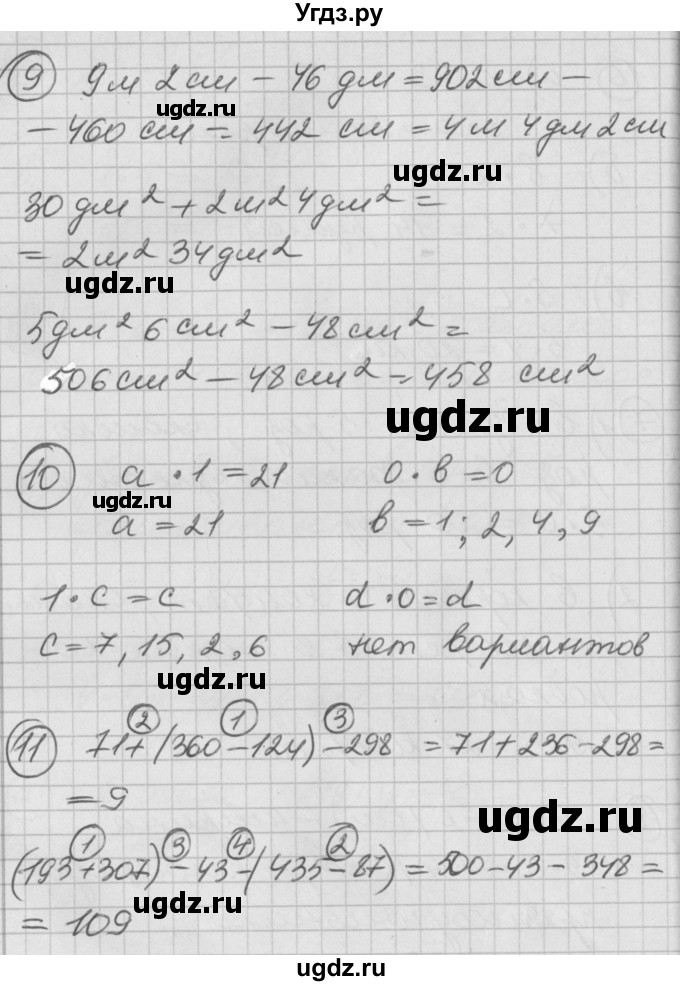 Угдз.ру
9 9м 2см - 46 дм = 902см -
ugdz.ru
- 460 см = 442 см = 4м 4дм 2см
ugdz.ru
30 дм² + 2м² 4дм² =
= 2м² 34дм²
ugdz.ru
5дм² 6см² - 48см² =
506см² - 48см² = 458 см²
ugdz.ru
10 a · 1 = 21 0 · в = 0
ugdz.ru
a = 21 в = 1; 2, 4, 9
1 · c = c d · 0 = d
c = 7, 15, 2, 6 нет вариантов
ugdz.ru
2 1 3
11 71 + (360 - 124) - 298 = 71 + 236 - 298 =
= 9
ugdz.ru
1 3 4 2
(193 + 307) - 43 - (435 - 87) = 500 - 43 - 348 =
ugdz.ru
= 109
ugdz.ru